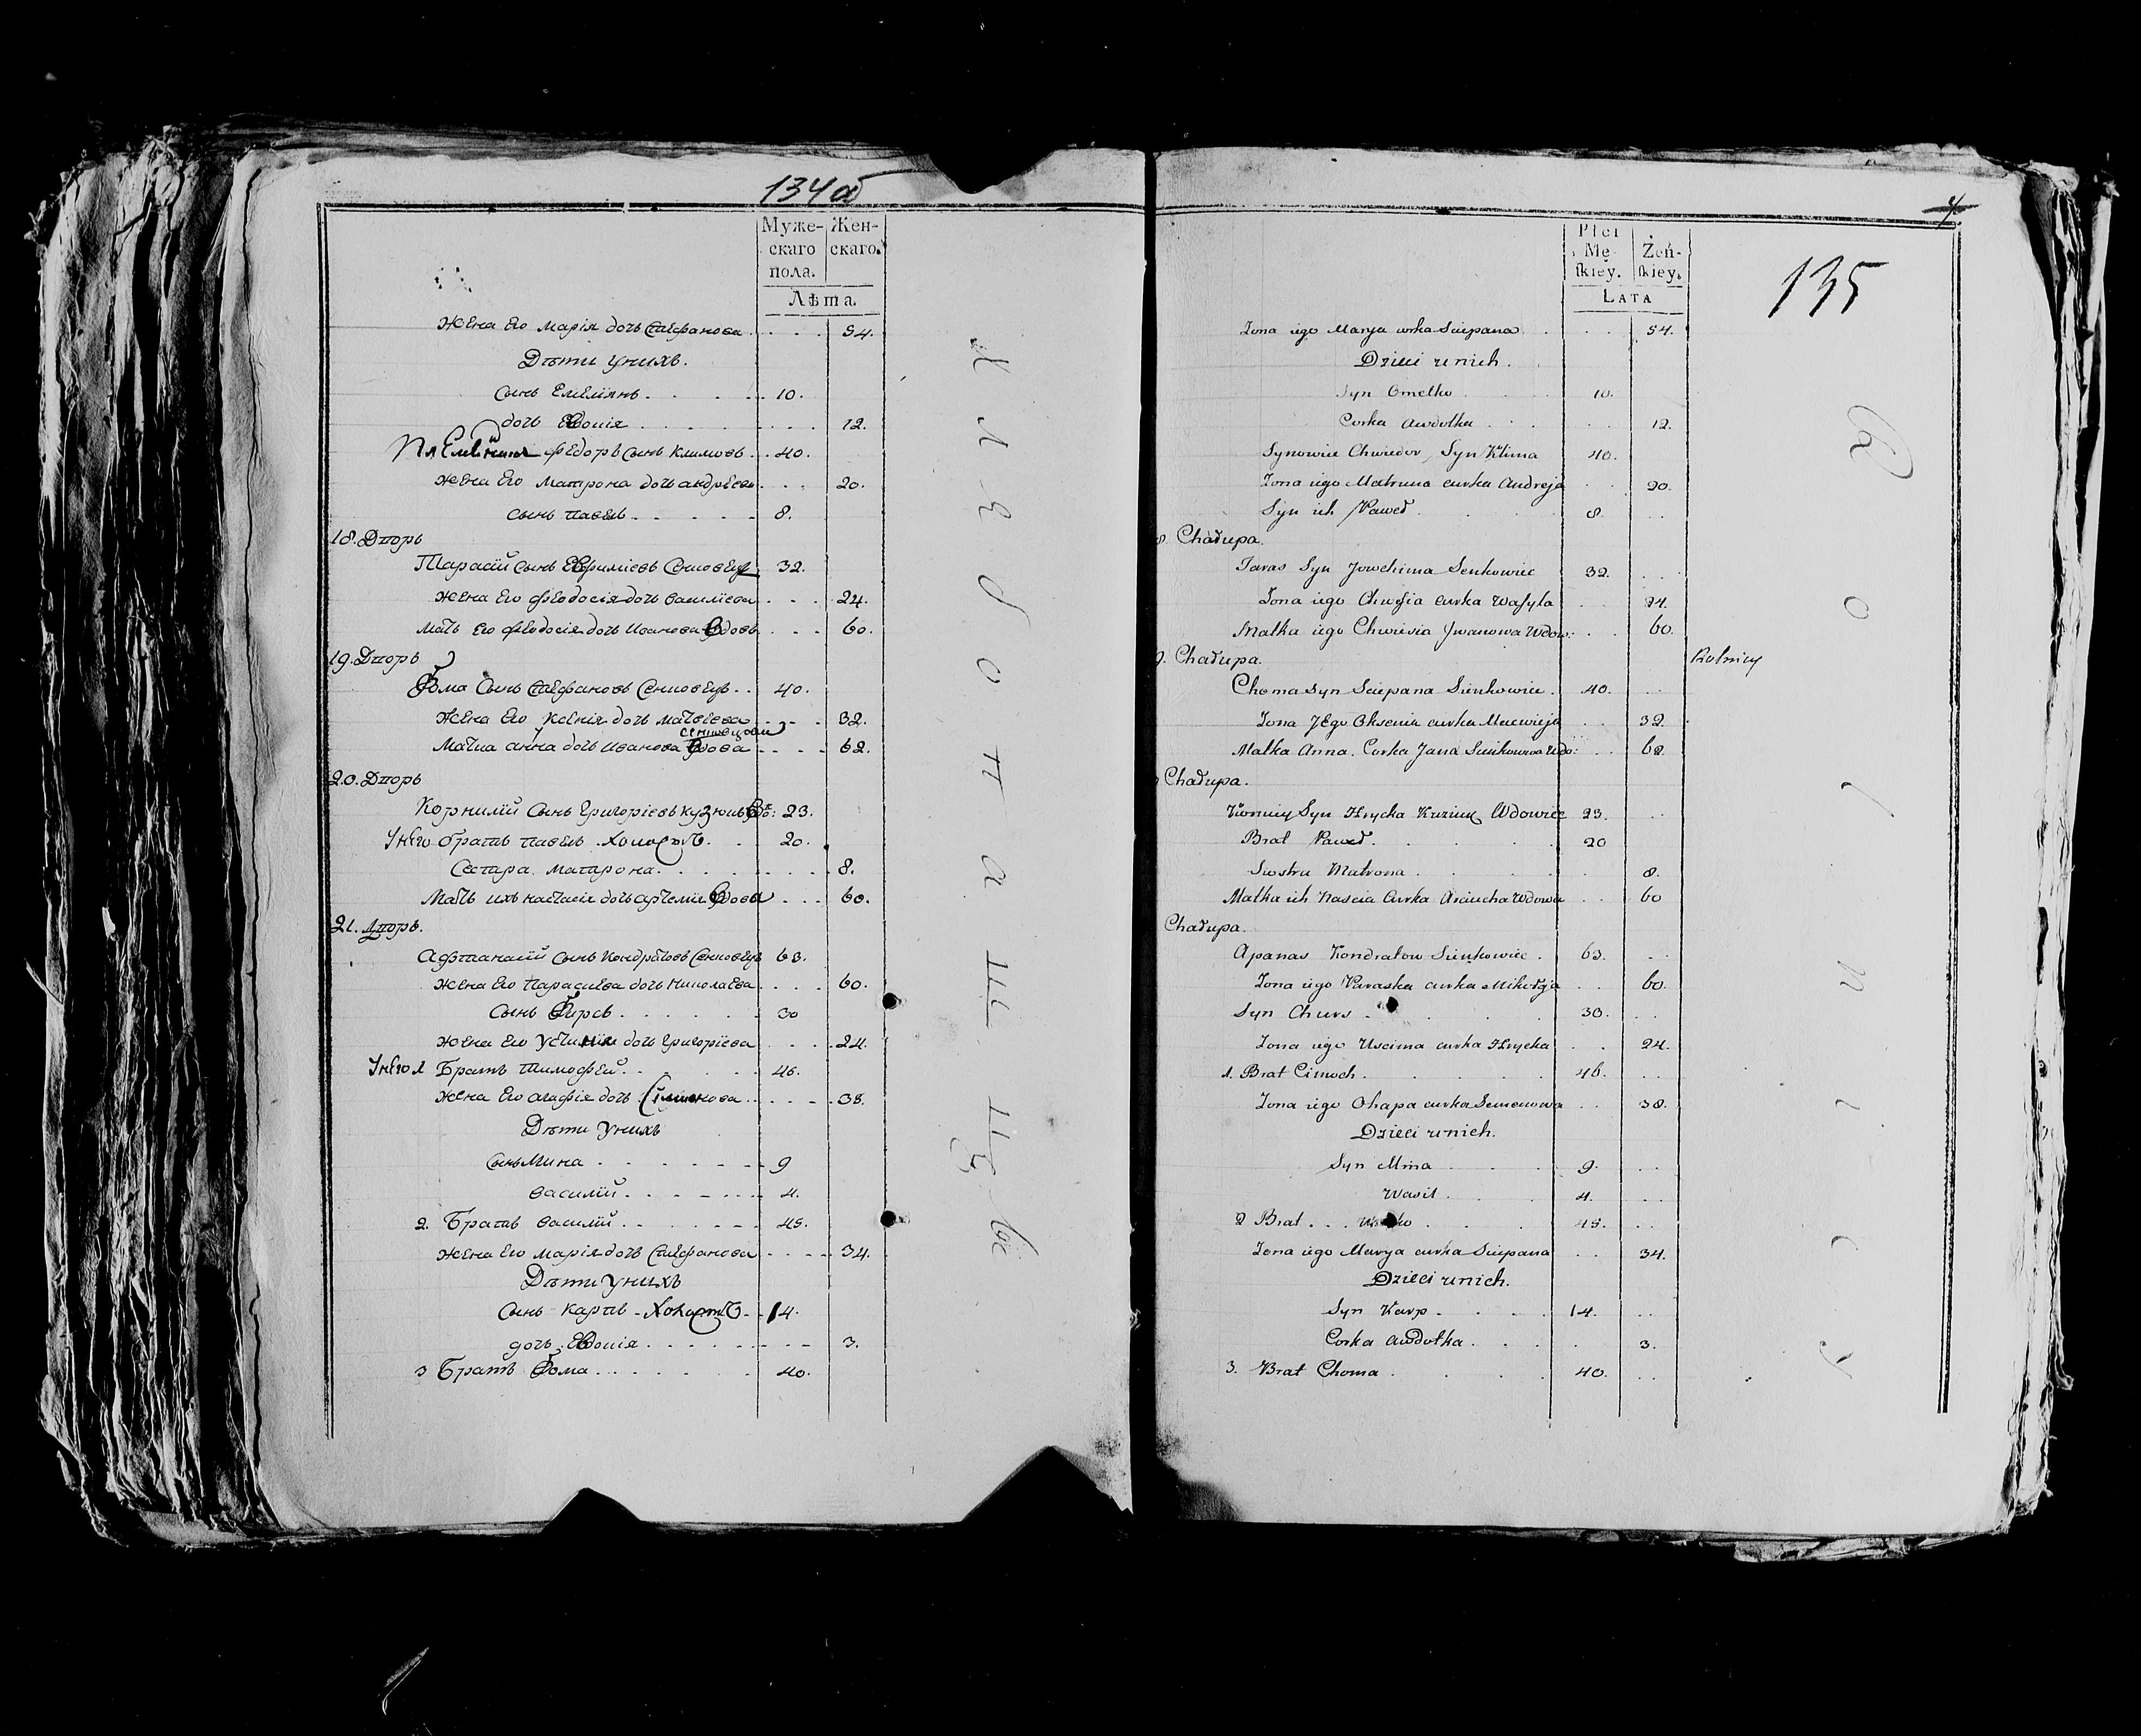 134 об
Муже-
скаго
пола.
Жен-
скаго.
Лѣта.
Жена Его Марія дочь Стефанова . . . . 54.
Дѣти у нихъ.
Сынъ Емелиянъ . . . . 10.
дочь Евдокія . . . . 12.
Племянникъ Федоръ Сынъ Климовъ . . 40.
Жена Его Матрона дочь Андреева . . . 20.
Сынъ Павелъ . . . . . 8.
18. Дворъ
Тарасій Сынъ Ефимiевъ Сенковецъ 32.
Жена Его Феодосія дочь Василiева . . . 24.
Мать Его Феодосія дочь Иванова Вдова . . . 60.
19. Дворъ
Фома Сынъ Стефановъ Сенковецъ . . 40.
Жена Его Ксенія дочь Матвеева . . . . 32.
Сенковцова
Матка Анна дочь Иванова Вдова . . . . 62.
20. Дворъ
Корнилій Сынъ Григоріевъ Кузнецъ Вд: 23.
У него братъ Павелъ . Холостъ . . 20.
Сестра Матрона . . . . . . . 8.
Мать ихъ Настасія дочь Артемiя Вдова . . . 60.
21. Дворъ.
Афанасій Сынъ Кондратовъ Сенковецъ 63.
Жена Его Параскева дочь Николаева . . . . 60.
Сынъ Фирсъ . . . . . . 30
Жена Его Устинiя дочь Григорiева . . . . 24.
У него 1 Братъ Тимофей . . . . . . 46.
Жена Его Агафія дочь Семенова . . . . . 38.
Дѣти У нихъ
Сынъ Мина . . . . . . . 9
Василій . . . . . . . 4.
2. Братъ Василій . . . . . . . 45.
Жена Его Марія дочь Стефанова . . . . 34.
Дѣти У нихъ
Сынъ Карпъ - Холостъ - - 14.
дочь Евдокія . . . . . . . . . 3.
3 Братъ Фома . . . . . . . 40.
Хлебопашцы
4
135
Płci
Mę-
ſkiey.
Żeń-
ſkiey.
LATA
Zona iego Marya curka Sciepana . . . . 54.
Dzieci u nich.
Syn Omelko . . . 10.
Corka Awdotka . . . . . 12.
Synowiec Chwiedor, Syn Klima 40.
Zona iego Matruna curka Andreja . . 20.
Syn ich Paweł . . . . 8. . .
8. Chałupa.
Taras Syn Jowchima Senkowiec 32. . .
Zona iego Chwesia curka Wasyla . . 24.
Matka iego Chwiesia Jwanowa Wdow: . . 60.
9. Chałupa.
Rolnicy
Choma Syn Sciepana Sienkowiec . 40. . .
Zona Jego Oksenia curka Macwieja . . 32.
Matka Anna. Corka Jana Sienkowa Wdo: . . 62.
Chałupa.
Korniey Syn Hrycka Kuzniec Wdowiec 23. . .
Brat Paweł . . . . 20
Siostra Matrona . . . . . 8.
Matka ich Nascia Curka Arciucha Wdowa . . 60
Chałupa.
Apanas Kondratow Sienkowiec . 63. . .
Zona iego Paraska curka Mikołaja . . 60.
Syn Churs . . . . 30. . .
Zona iego Uscima curka Hrycka . . 24.
1. Brat Cimoch . . . . . 46. . .
Zona iego Ohapa curka Semenowa . . 38.
Dzieci u nich.
Syn Mina . . . 9. . .
Wasil . . . 4. . .
2 Brat . . . . . . 45. . .
Zona iego Marya curka Sciepana . . 34.
Dzieci u nich.
Syn Karp . . . . 14. . .
Corka Awdotka . . . . 3.
3. Brat Choma . . . . 40. . .
Rolnicy